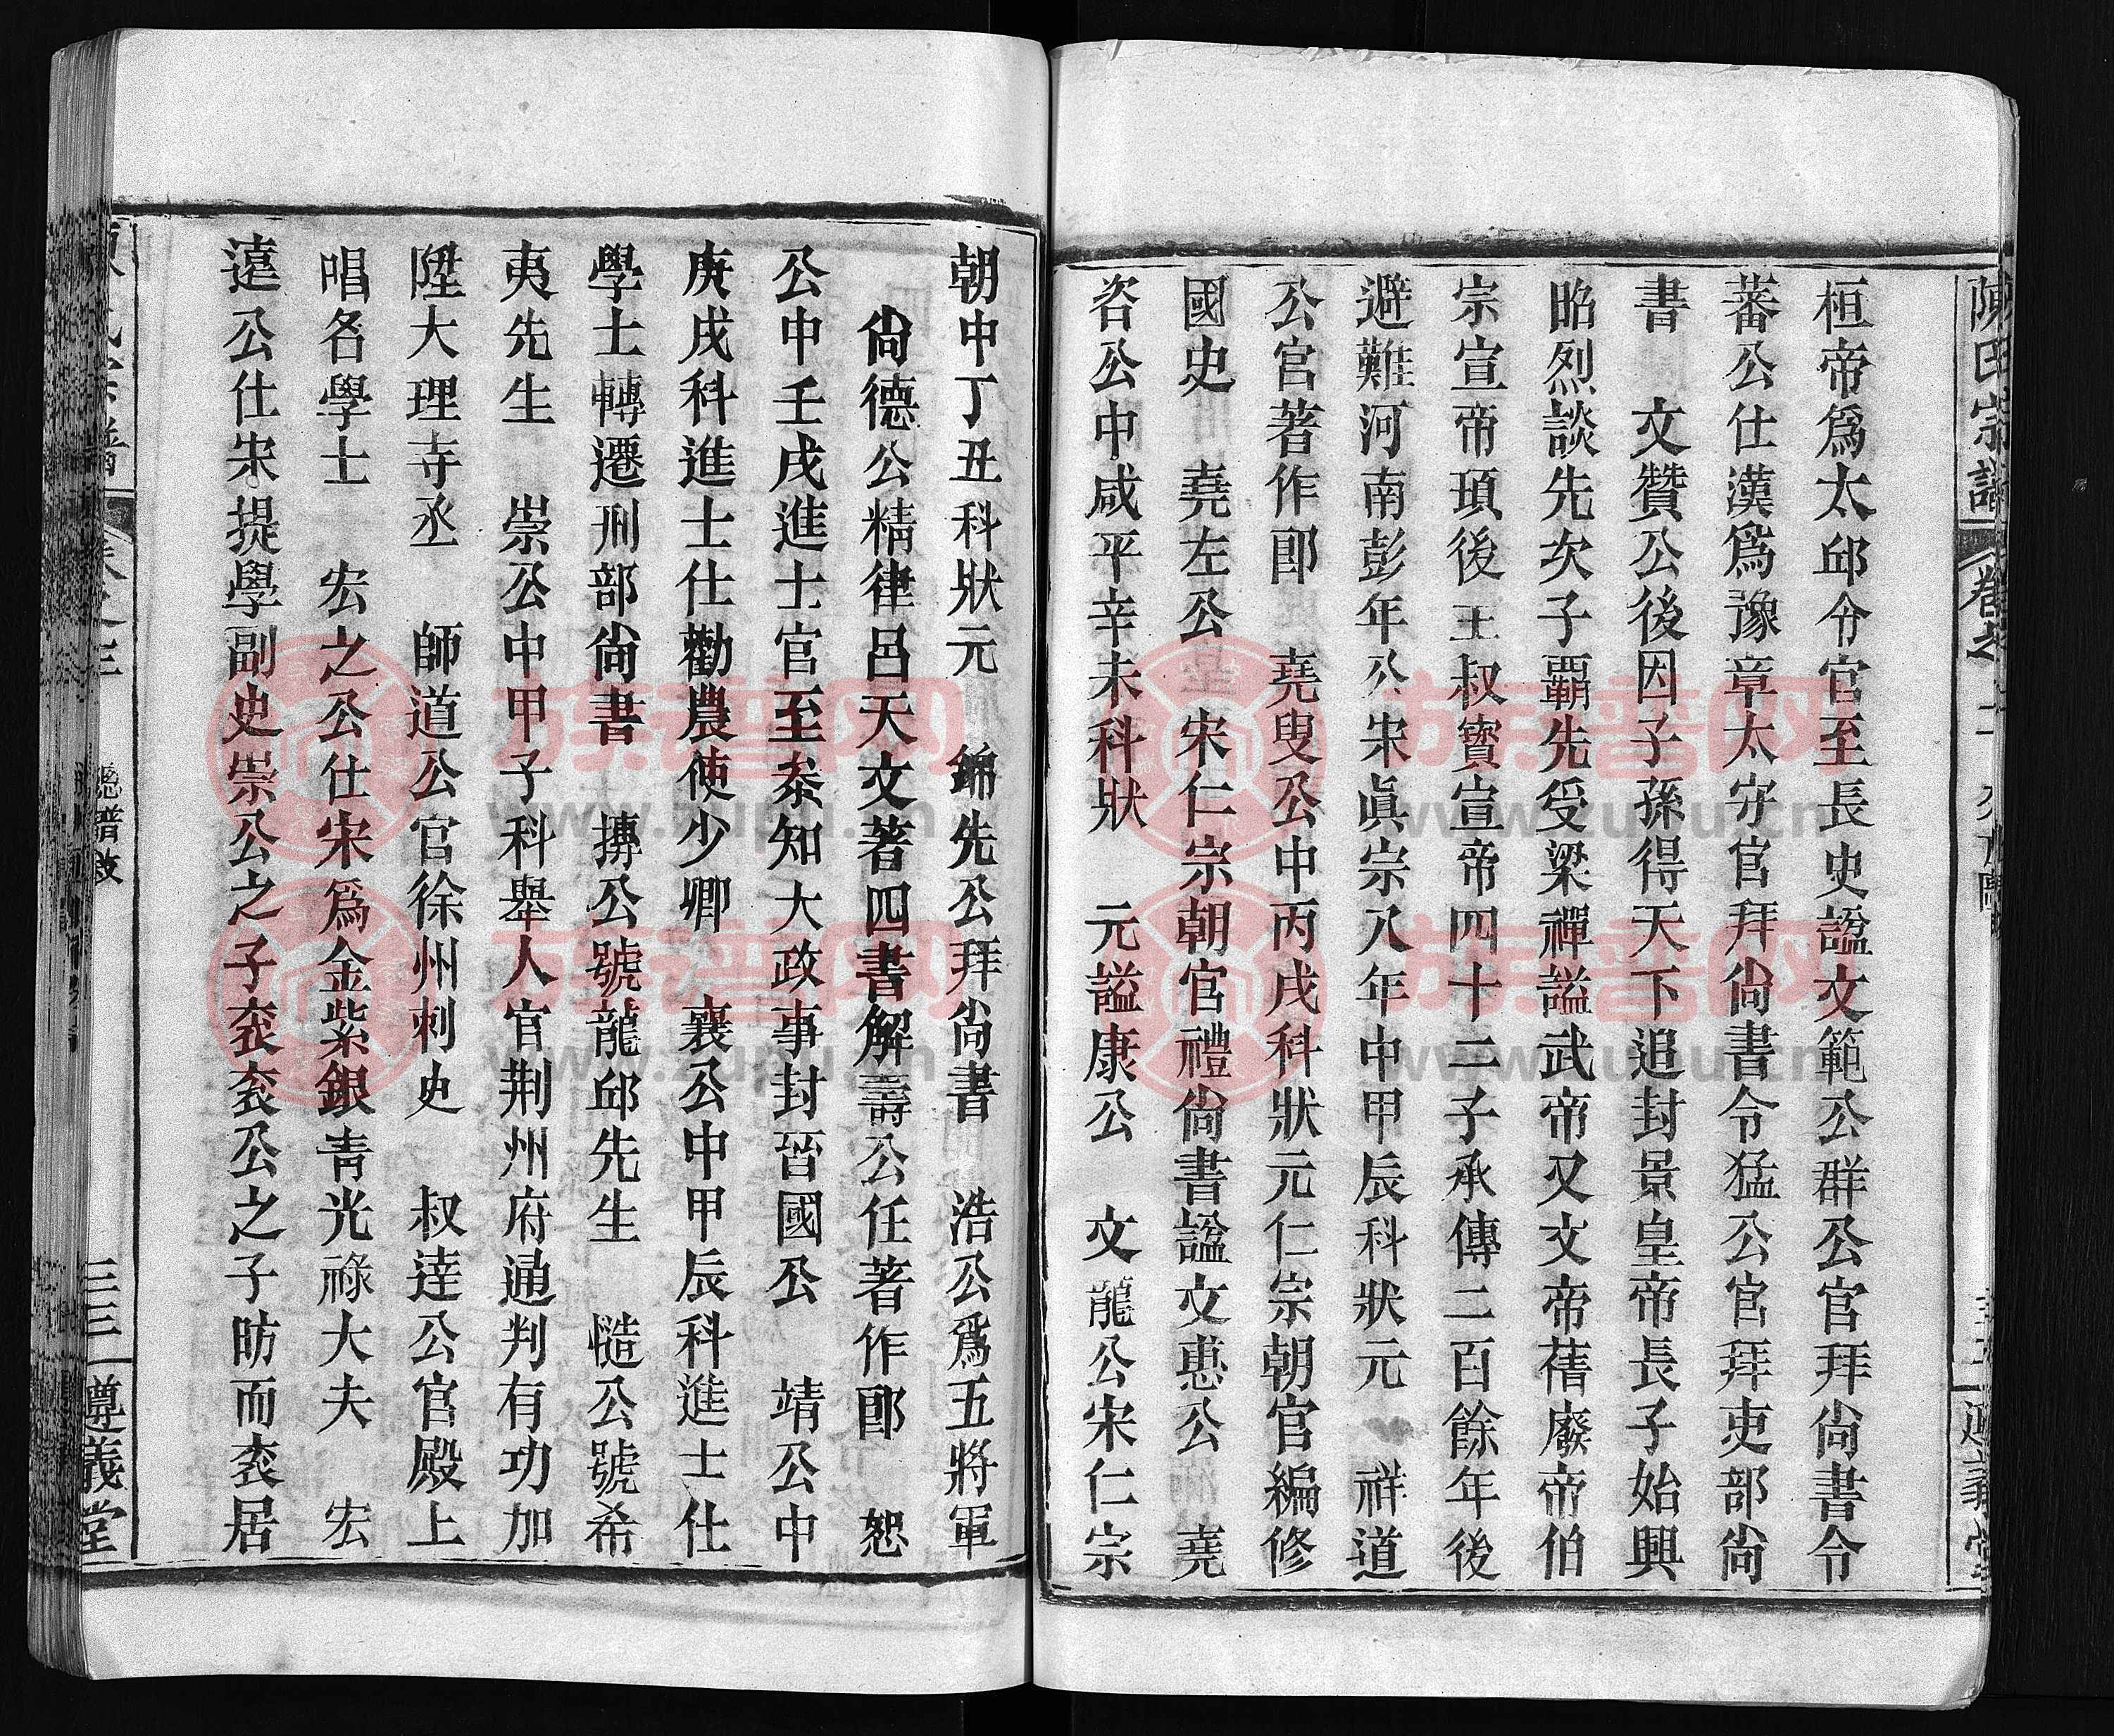 桓帝爲太邱令官至長史諡文範公群公官拜尙書令
蕃公仕漢爲豫章太守官拜尙書令猛公官拜吏部尙
書　文贊公後因子孫得天下追封景皇帝長子始興
昭烈談先次子覇先受梁禪謚武帝又文帝蒨廢帝伯
宗宣帝頊後王叔寶宣帝四十二子承傳二百餘年後
避難河南彭年公宋眞宗八年中甲辰科狀元　祥道
公官著作郎　堯叟公中丙戌科狀元仁宗朝官編修
國史　堯左公　宋仁宗朝官禮尙書諡文惠公　堯
咨公中咸平辛未科狀　元謚康公　文龍公宋仁宗
朝中丁丑科狀元　錦先公拜尙書　浩公爲五將軍
尙德公精律呂天文著四書解壽公任著作郎　恕
公中壬戌進士官至叅知大政事封晉國公　靖公中
庚戌科進士仕勸農使少卿　襄公中甲辰科進士仕
學士轉遷刑部尙書　摶公號龍邱先生　慥公號希
夷先生　崇公中甲子科舉人官荆州府通判有功加
陞大理寺丞　師道公官徐州刺史　叔達公官殿上
唱名學士　宏之公仕宋爲金紫銀青光祿大夫　宏
遠公仕宋提學副史崇公之子袞袞公之子昉而袞居
陳氏宗譜
卷之
譜
卷之三
三三
遵義堂
族谱网
www.zupu.cn
族谱网
www.zupu.cn
族谱网
www.zupu.cn
族谱网
www.zupu.cn